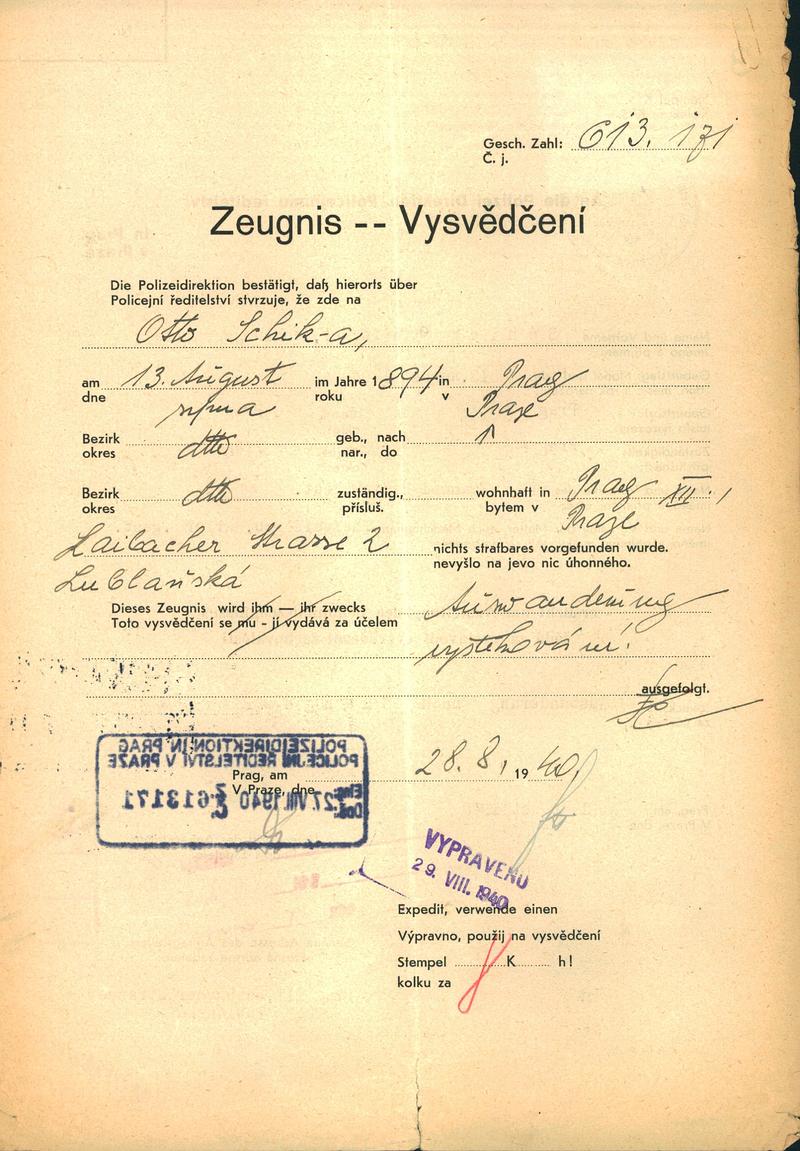 Gesch. Zahl: 613.171
Č. j.
Zeugnis -- Vysvědčení
Die Polizeidirektion bestätigt, daß hierorts über
Policejní ředitelství stvrzuje, že zde na
Otto Schik-a,
am 13. August im Jahre 1894 in Prag
dne srpna roku v Praze
Bezirk dtto geb., nach
okres nar., do
Bezirk dtto zuständig., wohnhaft in Prag XII.,
okres přísluš. bytem v Praze
Laibacher Strasse 2 nichts strafbares vorgefunden wurde.
Lublaňská nevyšlo na jevo nic úhonného.
Dieses Zeugnis wird ihm — ihr zwecks Auswanderung
Toto vysvědčení se mu - jí vydává za účelem vystěhování!
ausgefolgt.
POLIZEIDIREKTION IN PRAG
POLICEJNÍ ŘEDITELSTVÍ V PRAZE
Prag, am 28.8. 1940.
V Praze, dne
Eing.
Doš. 27.VIII.1940 Z. 613171
Č.
VYPRAVENO
29. VIII. 1940
Expedit, verwende einen
Výpravno, použij na vysvědčení
Stempel K h!
kolku za